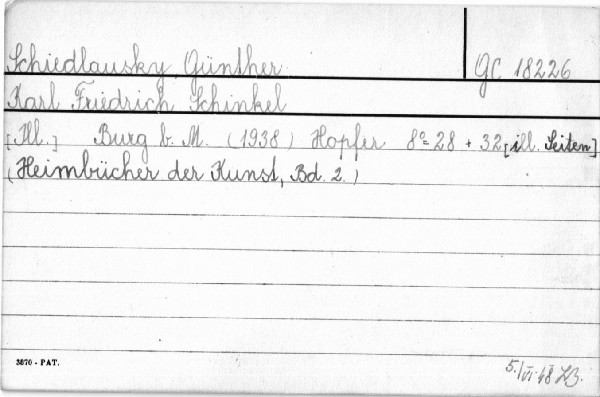 Schiedlausky, Günther GC 18226
Karl Friedrich Schinkel
[Ill.] Burg b. M. (1938) Hopfer 8°= 28 + 32 [ill. Seiten]
(Heimbücher der Kunst, Bd. 2.)
3870 - PAT.
5./VI. 48